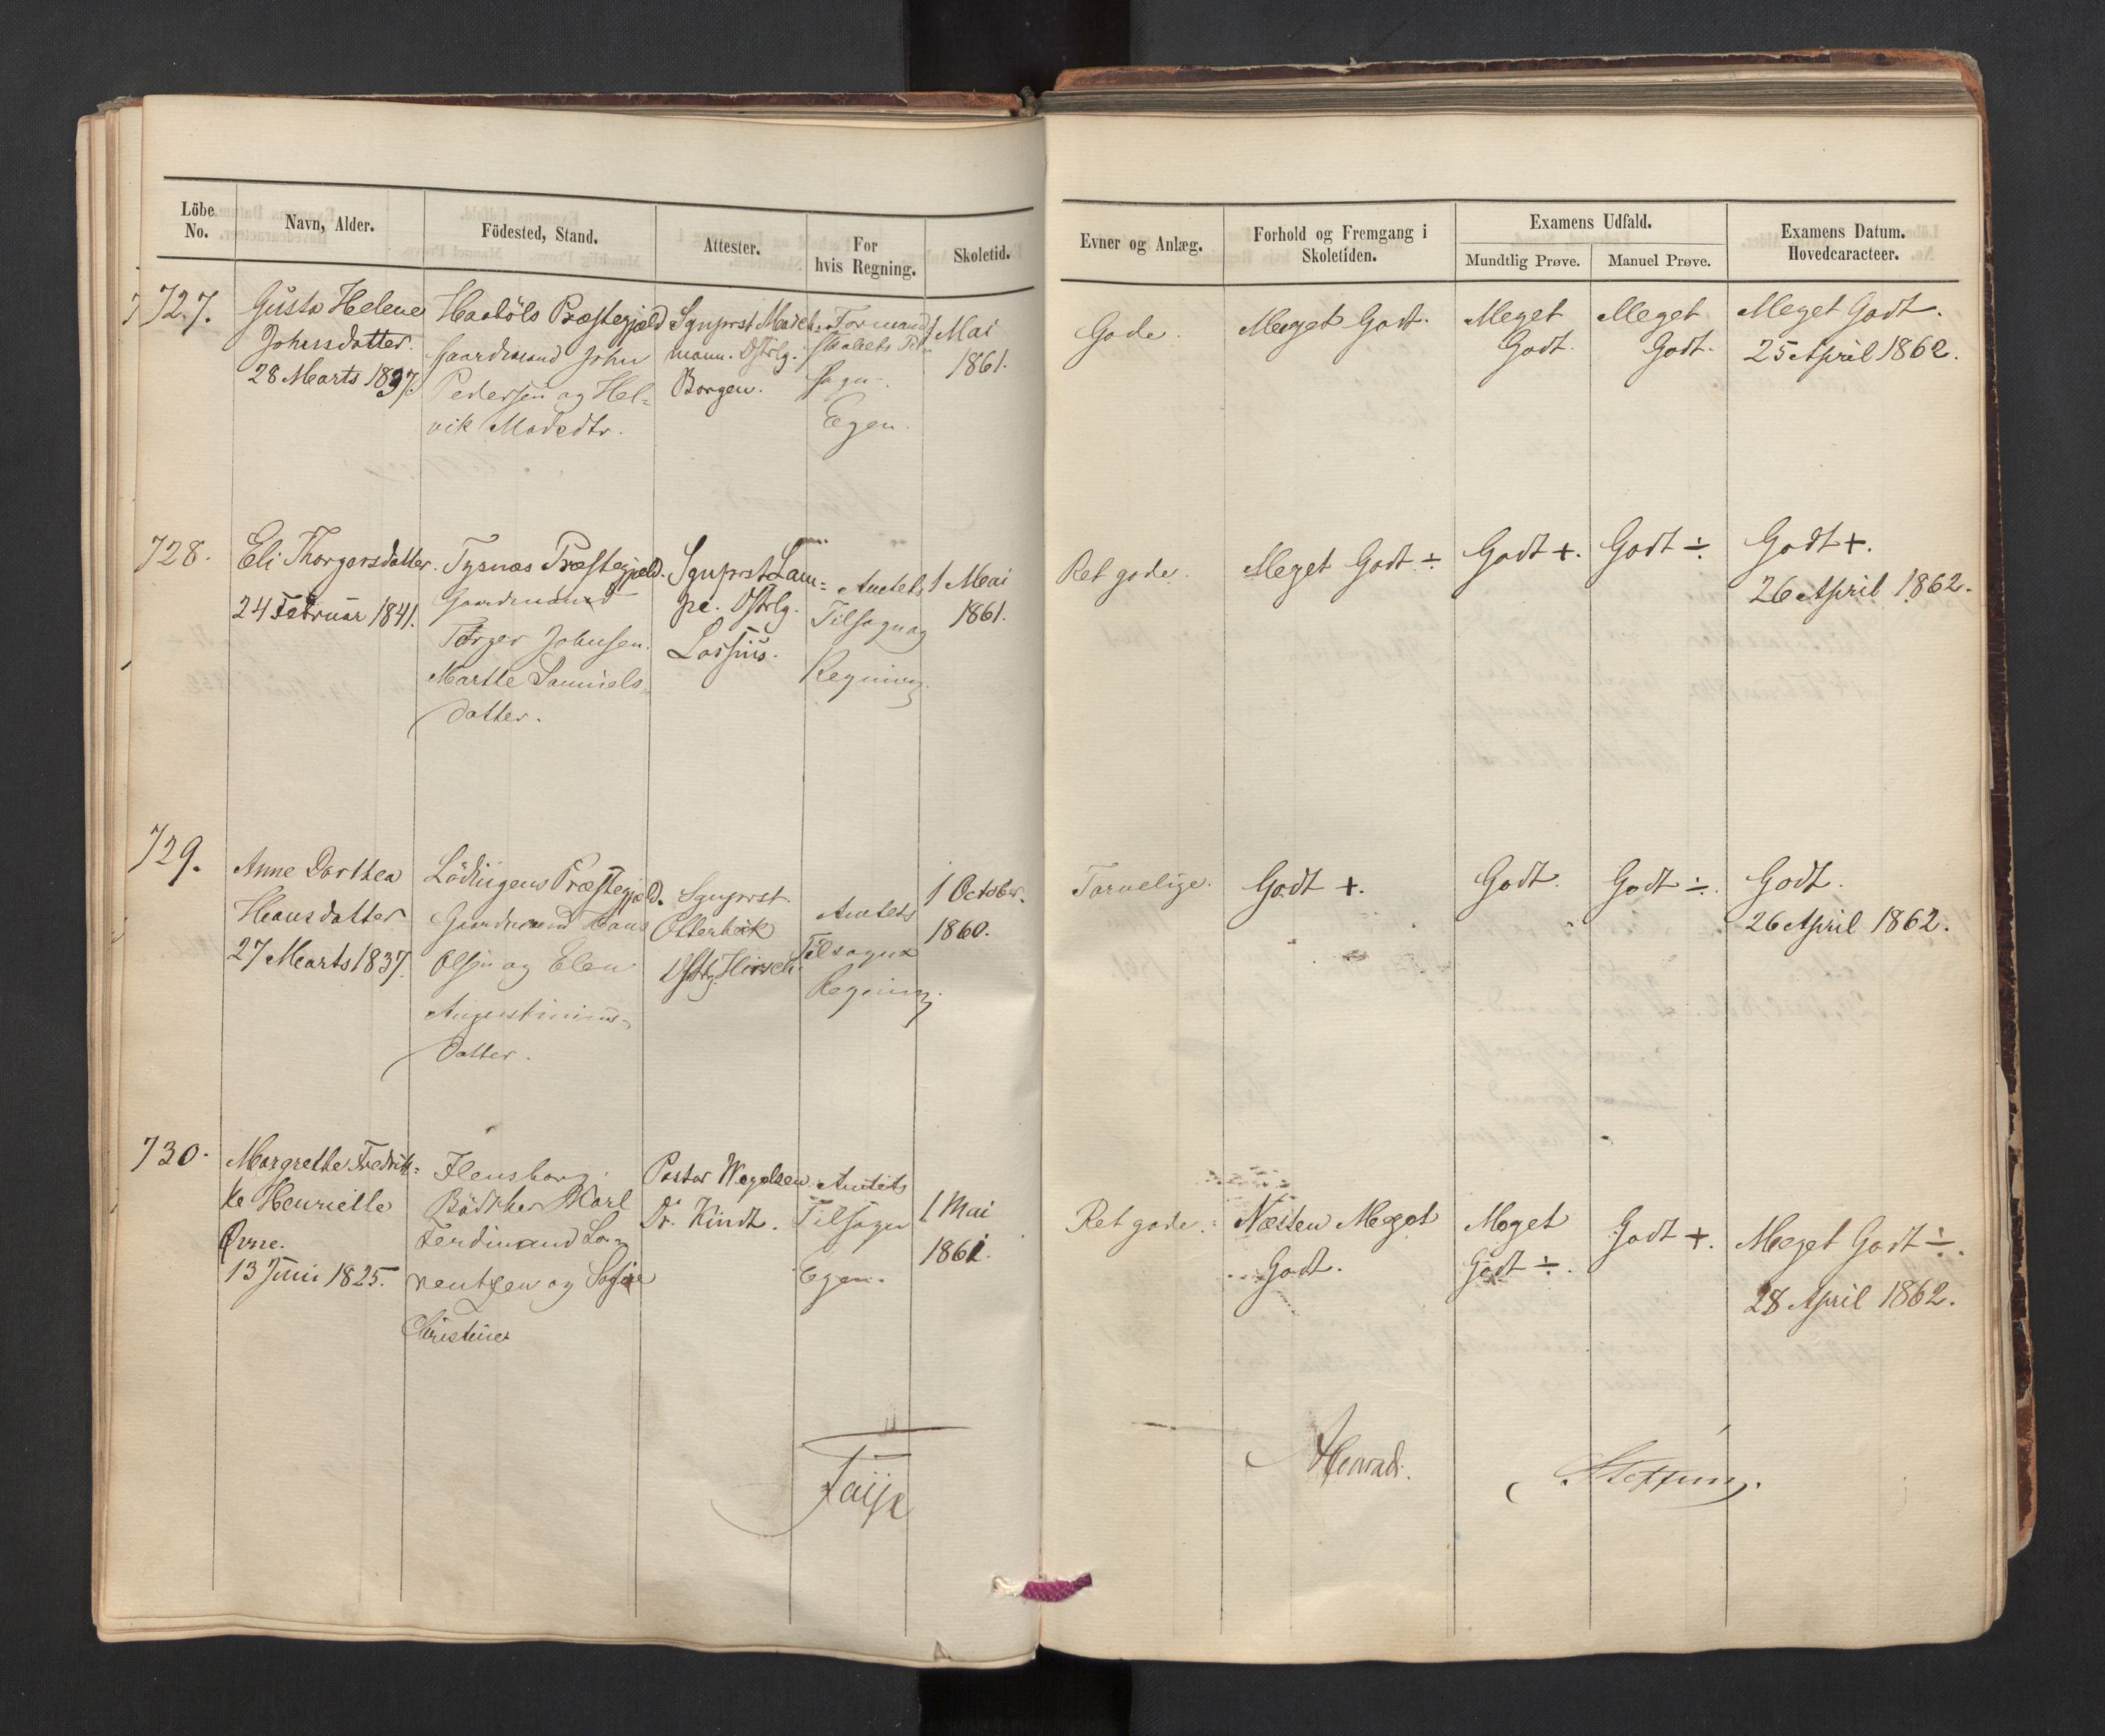 Löbe No.
Navn, Alder.
Födested, Stand.
Attester.
For hvis Regning.
Skoletid.
Evner og Anlæg.
Forhold og Fremgang i Skoletiden.
Examens Udfald.
Mundtlig Prøve.
Manuel Prøve.
Examens Datum. Hovedcaracteer.
727.
Gusta Helene
Johnsdatter.
28 Marts 1837.
Haaböls Præstegjæld
Gaardmand John
Pedersen og Hel=
vik Madsdtr.
Sgnprst
mann. Dstrlg.
Borgen.
Formand
skabets Til
sagn.
Egen.
1 Mai
1861.
Gode.
Meget Godt.
Meget
Godt.
Meget
Godt.
Meget Godt.
25 April 1862.
728.
Eli Thorgersdatter.
24 Februar 1841.
Tysnæs Præstegjæld.
Gaardmand
Torger Johnsen.
Marthe Samuels=
datter.
Sgnprst Lam=
pe. Dstrlg.
Lossius.
Amtets
Tilsagn og
Regning.
1 Mai
1861.
Ret gode.
Meget Godt ÷
Godt +.
Godt ÷
Godt +.
26 April 1862.
729.
Anne Dorthea
Hansdatter
27 Marts 1837.
Lödingens Præstegjæld.
Gaardmand Hans
Olsen og Elen
Augustinius=
datter.
Sgnprst.
Otterbek
Dstrlg. Hirsch.
Amtets
Tilsagn &
Regning.
1 October.
1860.
Tarvelige.
Godt +.
Godt.
Godt ÷.
Godt.
26 April 1862.
730.
Margrethe Fredrik=
ke Henriette
13 Juni 1825.
Flensborg.
Bödker Karl
Ferdinand Lo=
rentzen og Sofie
Christine
Pastor Wegelsen
Dr. Kindt.
Amtets
Tilsagn
Egen.
1 Mai
1861.
Ret gode.
Næsten Meget
Godt.
Meget
Godt ÷.
Godt +.
Meget Godt ÷.
28 April 1862.
Faye